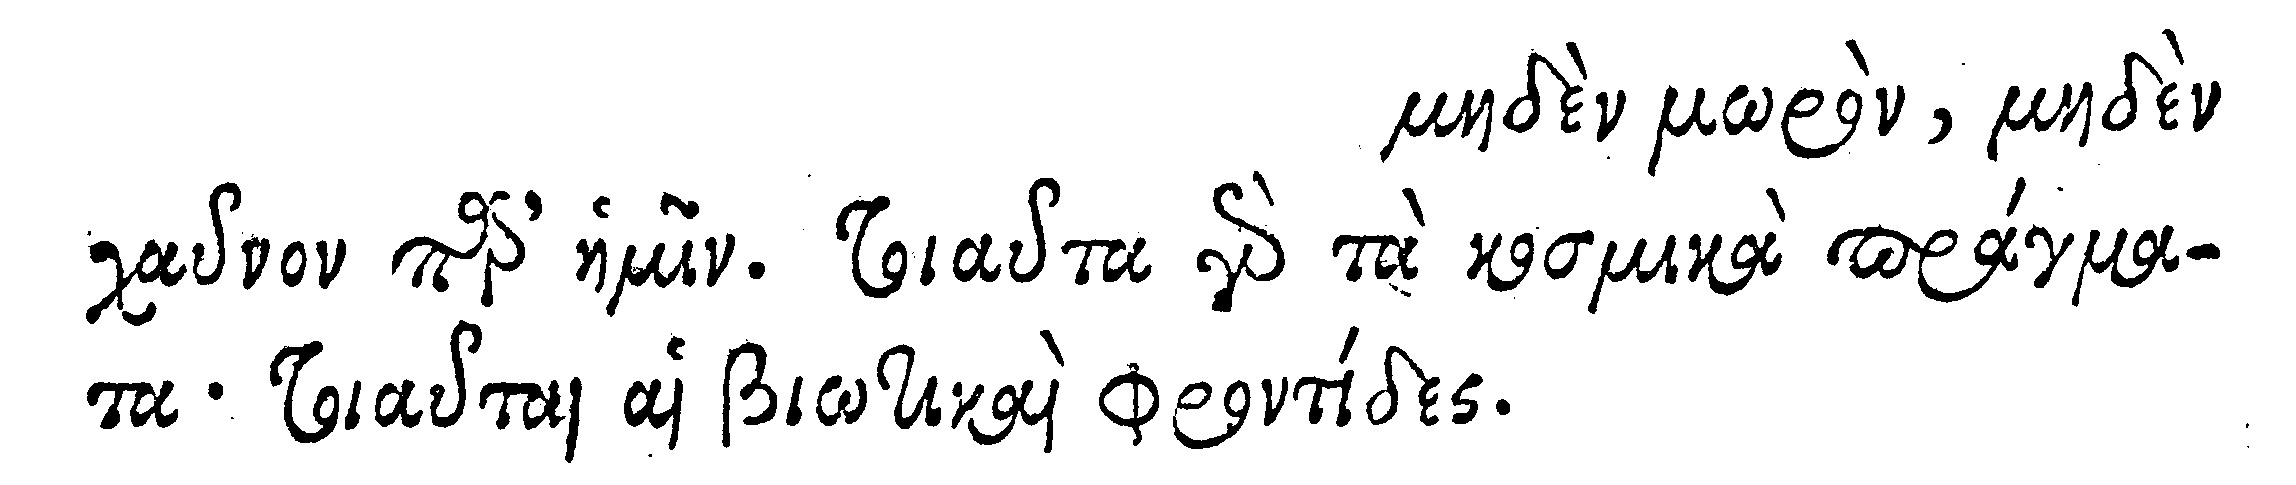 μηδὲν μωρὸν, μηδὲν
χαῦνον παρ' ἡμῖν. Τοιαῦτα γὰρ τὰ κοσμικὰ πράγμα-
τα· Τοιαῦται αἱ βιωτικαὶ φροντίδες.